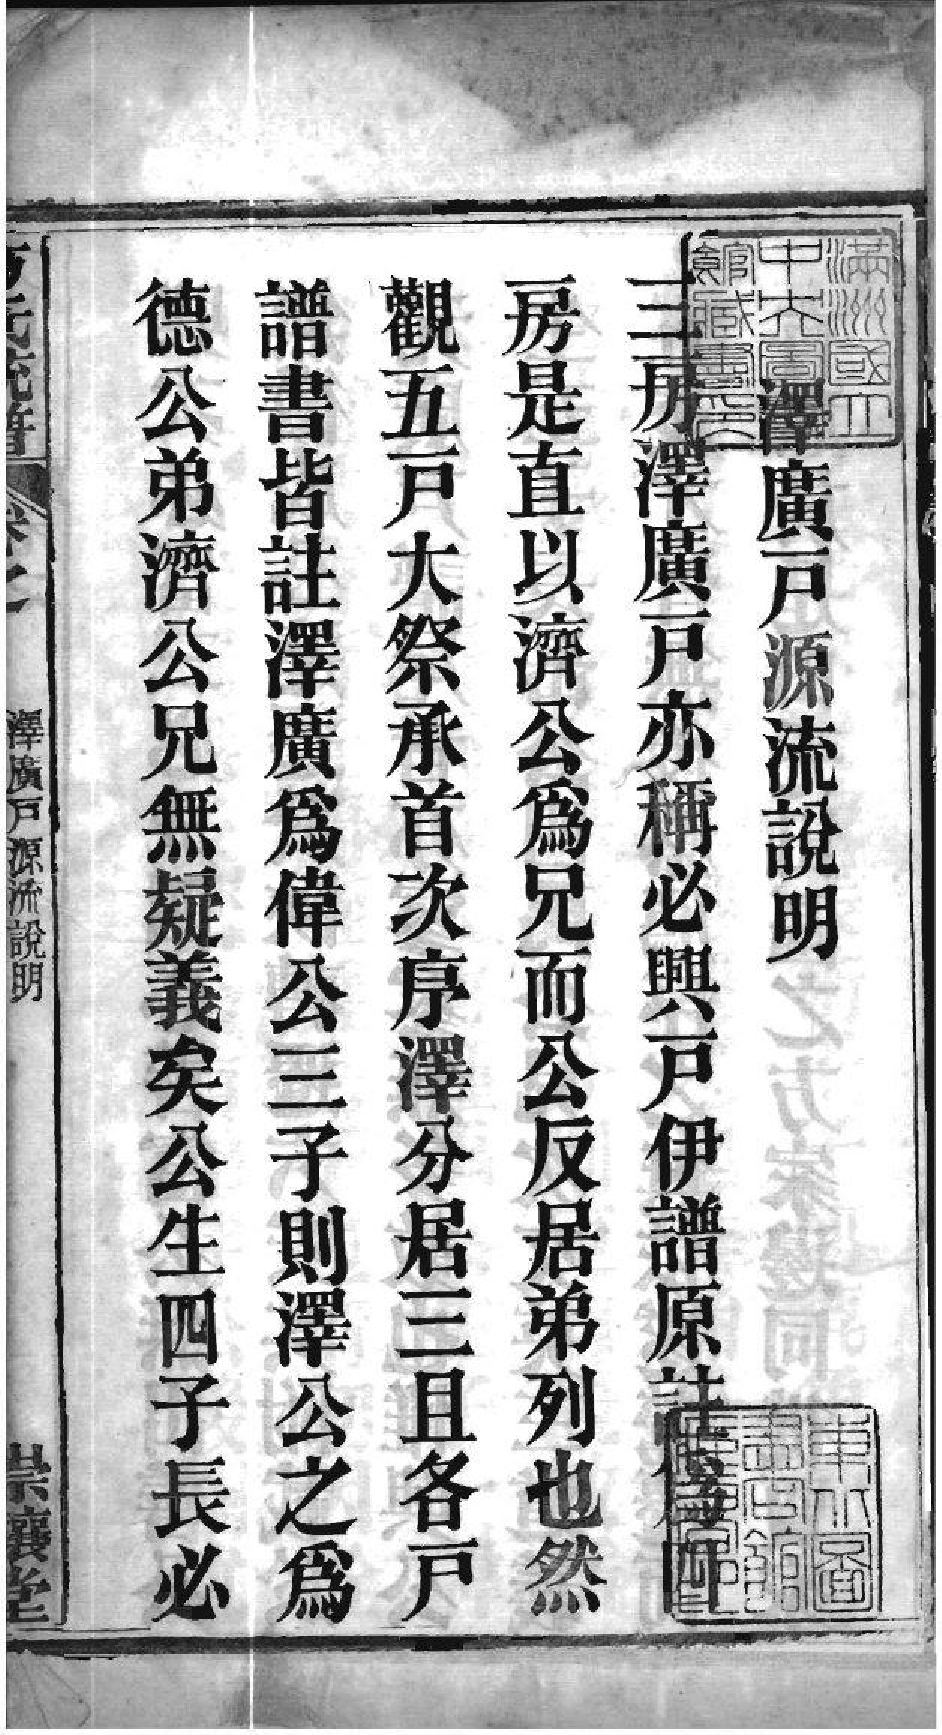 滿洲國立
中央圖書
館藏書印
澤廣戸源流說明
三房澤廣戸亦稱必興戸伊譜原註四
房是直以濟公爲兄而公反居弟列也然
觀五戸大祭承首次序澤分居三且各戸
譜書皆註澤廣爲偉公三子則澤公之爲
德公弟濟公兄無疑義矣公生四子長必
東北圖
書館
氏統譜
卷之
澤廣戸源流說明
崇讓堂